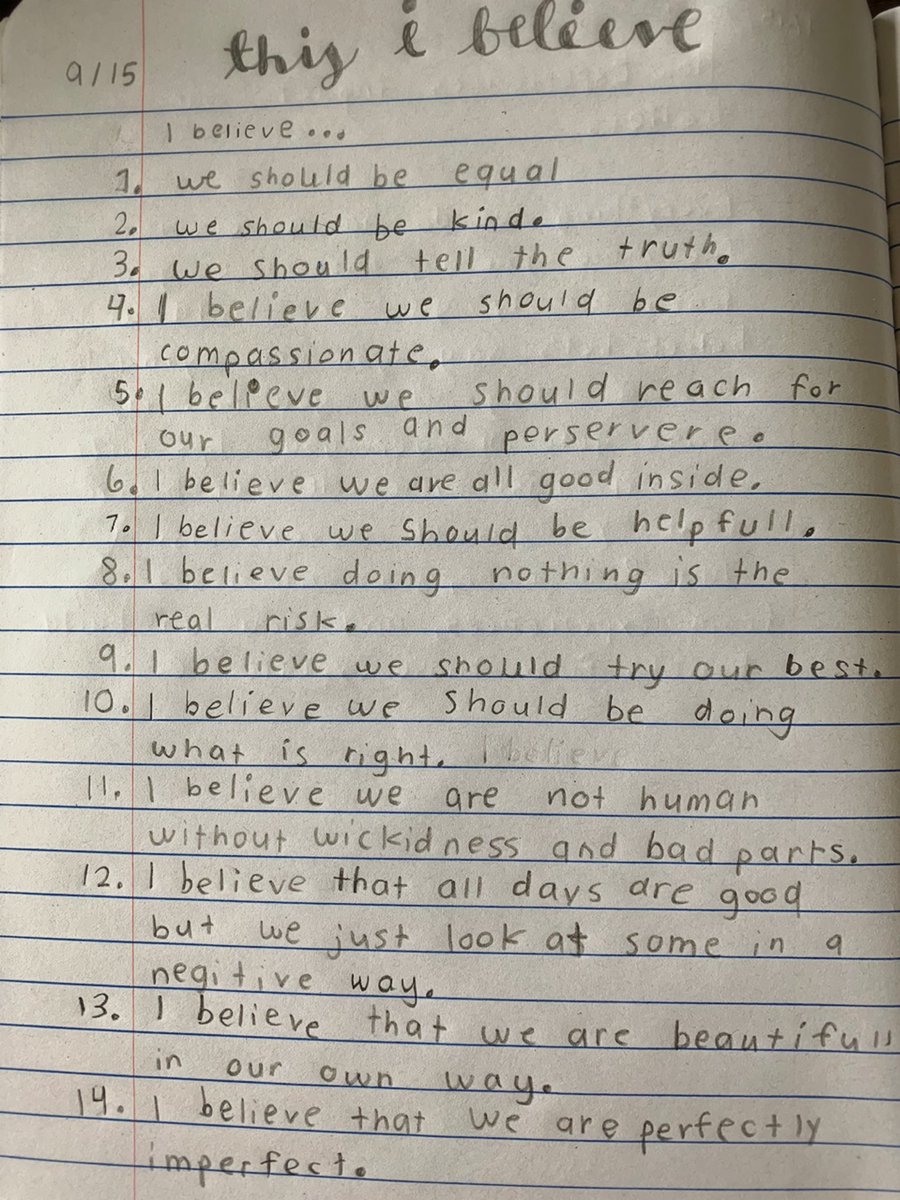 this i believe
9/15
I believe...
1. we should be equal
2. we should be kind.
3. we should tell the truth.
4. I believe we should be
compassionate.
5. I believe we should reach for
our goals and perservere.
6. I believe we are all good inside.
7. I believe we should be helpfull.
8. I believe doing nothing is the
real risk.
9. I believe we should try our best.
10. I believe we should be doing
what is right. I believe
11. I believe we are not human
without wickidness and bad parts.
12. I believe that all days are good
but we just look at some in a
negitive way.
13. I believe that we are beautifull
in our own way.
14. I believe that we are perfectly
imperfect.